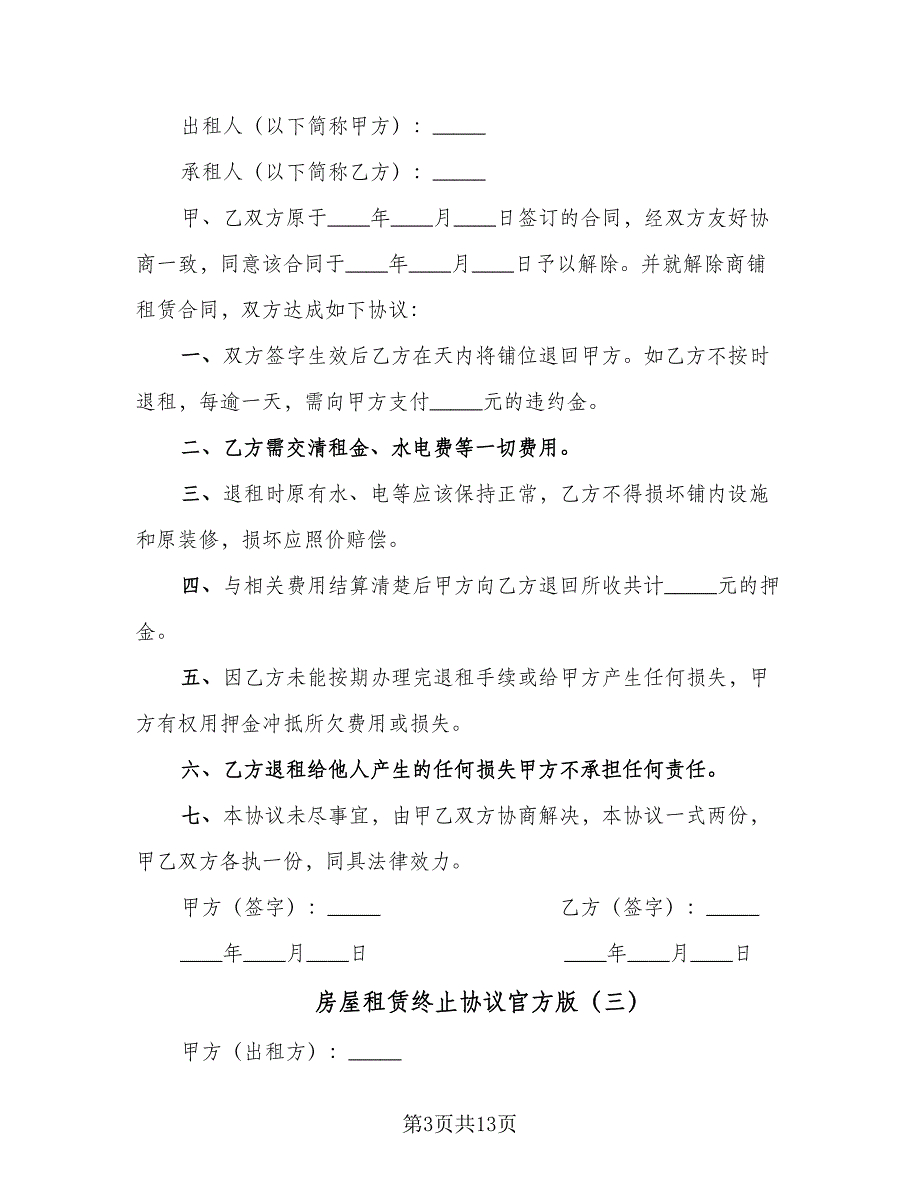 出租人（以下简称甲方）：_____
承租人（以下简称乙方）：_____
甲、乙双方原于____年____月____日签订的合同，经双方友好协
商一致，同意该合同于____年____月____日予以解除。并就解除商铺
租赁合同，双方达成如下协议：
一、双方签字生效后乙方在天内将铺位退回甲方。如乙方不按时
退租，每逾一天，需向甲方支付_____元的违约金。
二、乙方需交清租金、水电费等一切费用。
三、退租时原有水、电等应该保持正常，乙方不得损坏铺内设施
和原装修，损坏应照价赔偿。
四、与相关费用结算清楚后甲方向乙方退回所收共计_____元的押
金。
五、因乙方未能按期办理完退租手续或给甲方产生任何损失，甲
方有权用押金冲抵所欠费用或损失。
六、乙方退租给他人产生的任何损失甲方不承担任何责任。
七、本协议未尽事宜，由甲乙双方协商解决，本协议一式两份，
甲乙双方各执一份，同具法律效力。
甲方（签字）：_____ 乙方（签字）：_____
____年____月____日 ____年____月____日
房屋租赁终止协议官方版（三）
甲方（出租方）：_____
第3页共13页